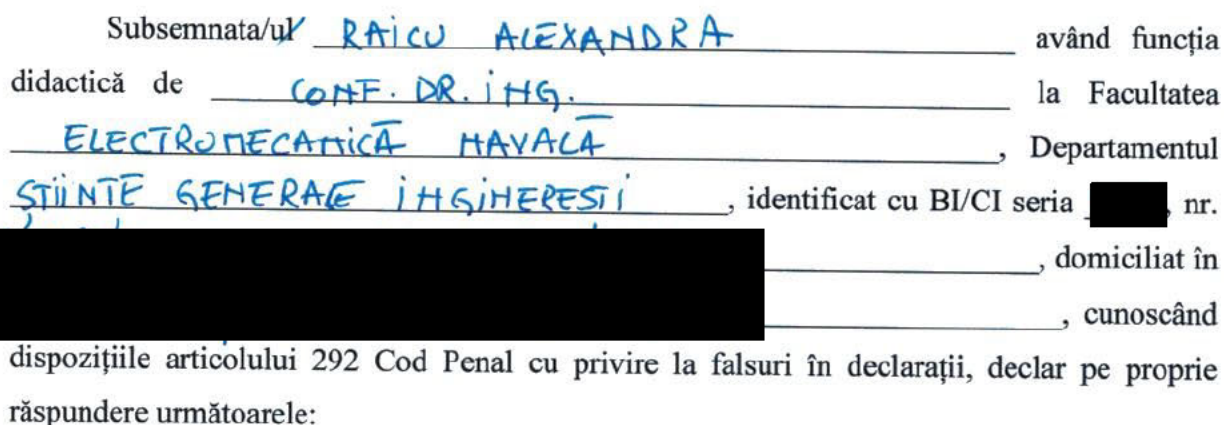 Subsemnata/ul RAICU ALEXANDRA având funcția
didactică de CONF. DR. ING. la Facultatea
ELECTROMECANICĂ NAVALĂ, Departamentul
ȘTIINȚE GENERALE INGINEREȘTI, identificat cu BI/CI seria , nr.
, domiciliat în
, cunoscând
dispozițiile articolului 292 Cod Penal cu privire la falsuri în declarații, declar pe proprie
răspundere următoarele: